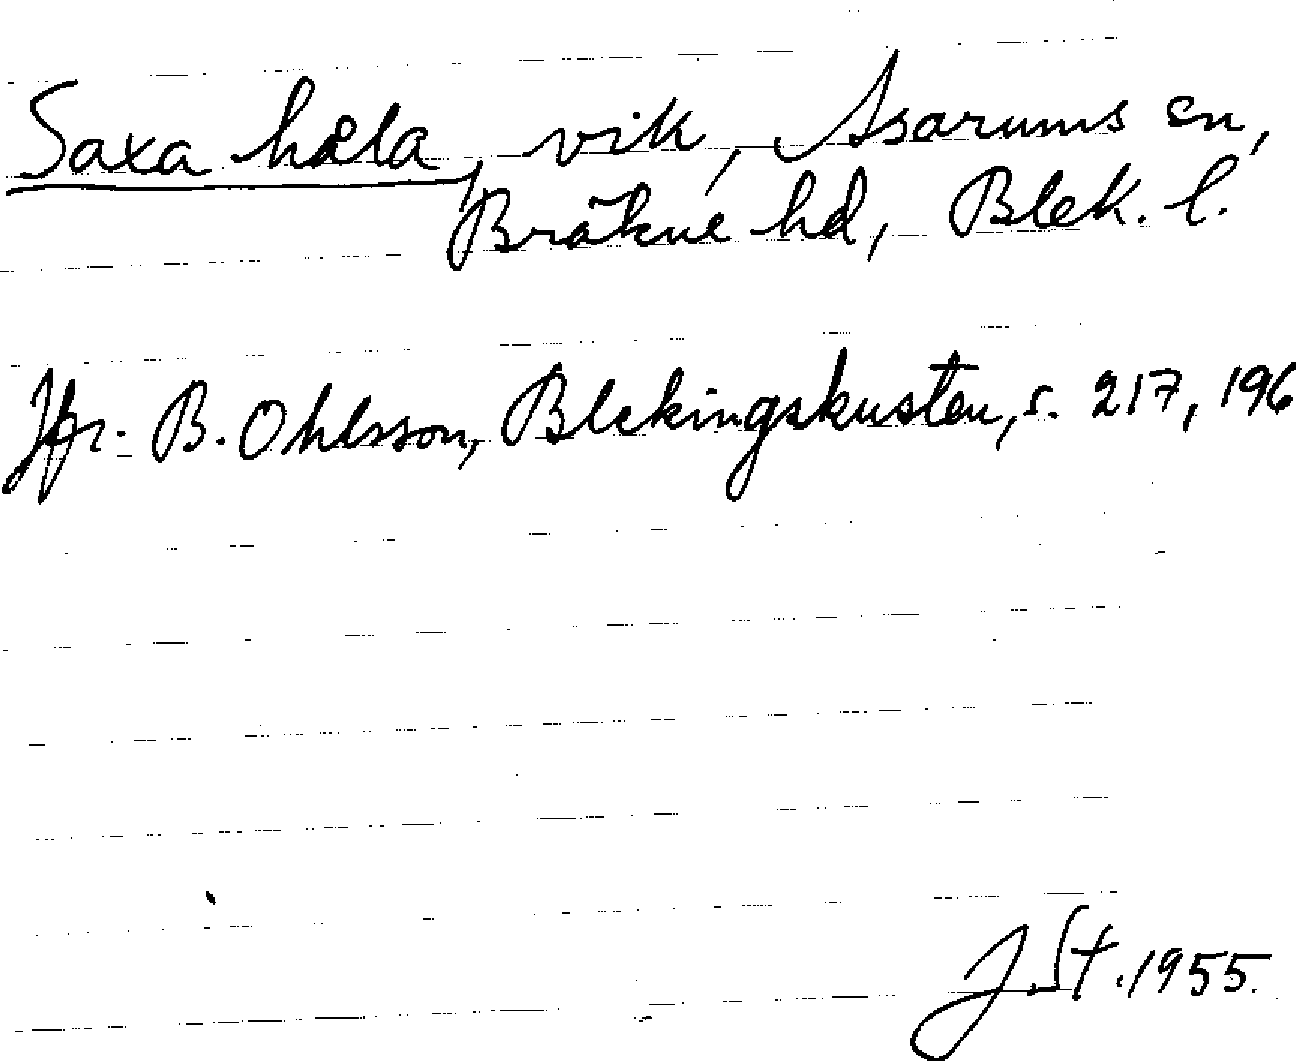 Saxa hæla, vik, Asarums sn,
Bräkne hd, Blek. l.
Jfr. B. Ohlsson, Blekingskusten, s. 217, 196
J.St. 1955.